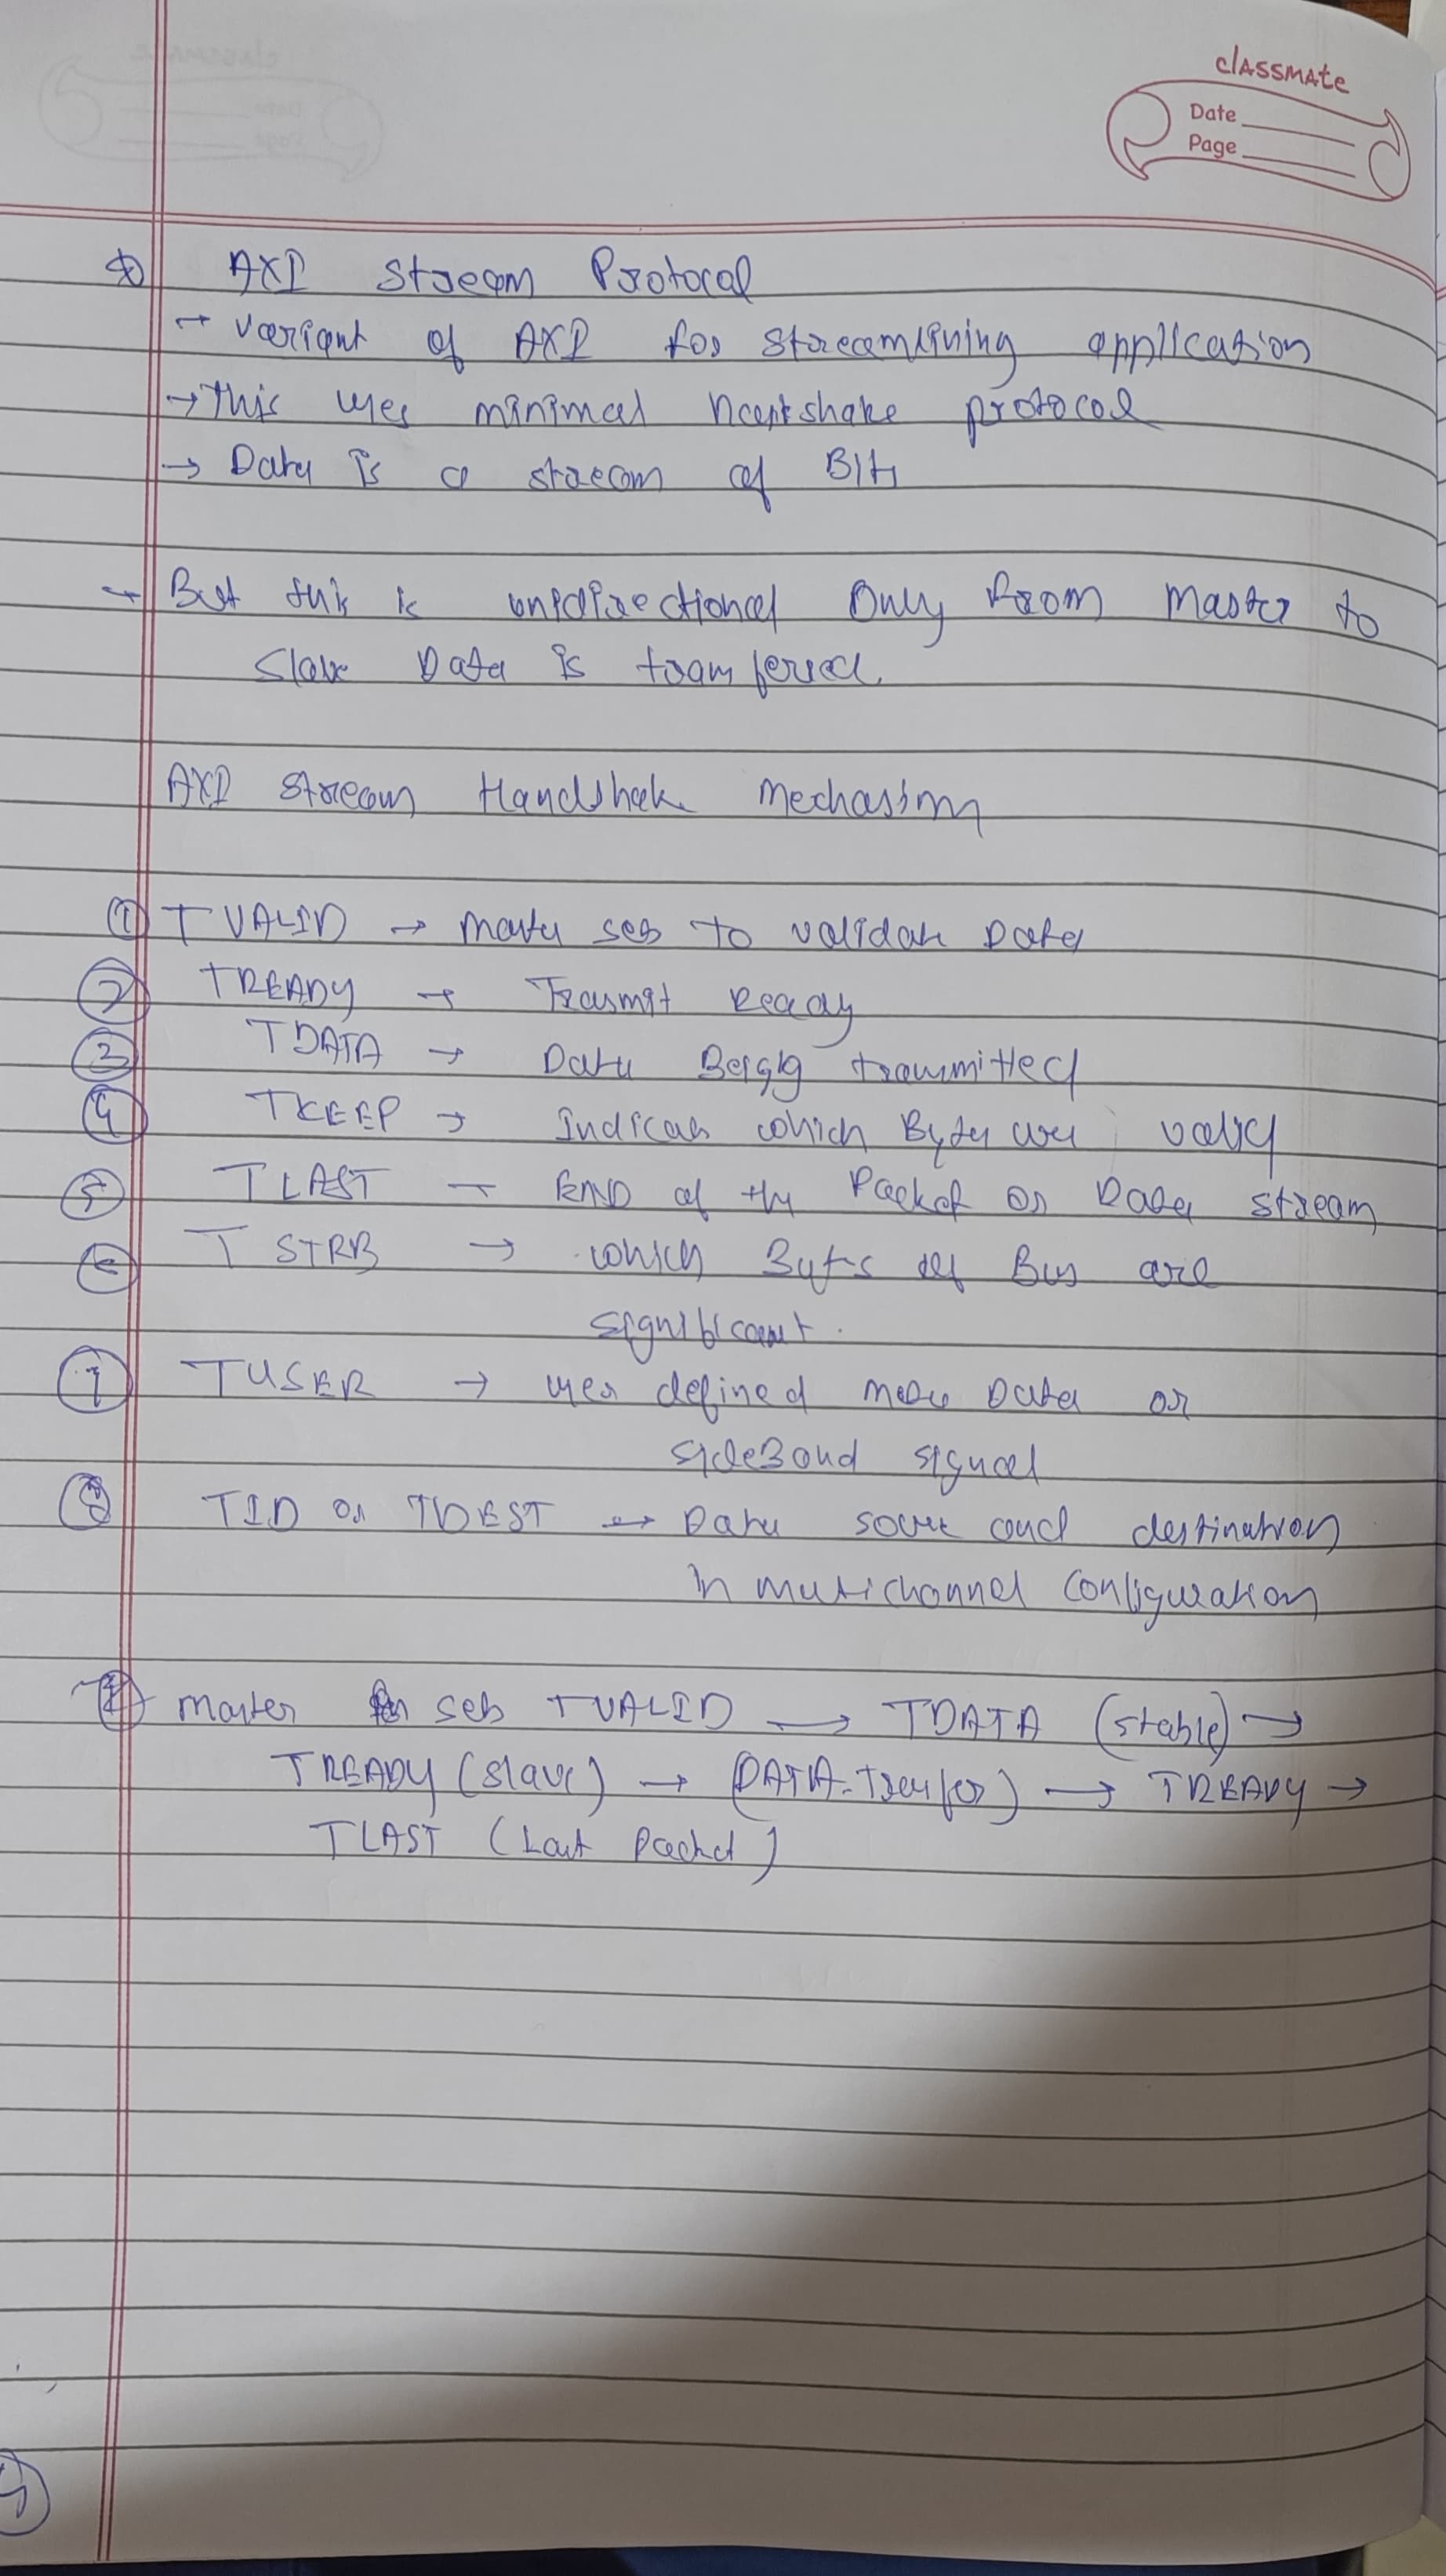 classmate
Date
Page
AXI Stream Protocol
→ Variant of AXI for streamlining application
→ This uses minimal handshake protocol
→ Data is a stream of Bits
→ But this is unidirectional Only from Master to
Slave Data is transfered.
AXI Stream Handshek Mechasim
① TVALID → Master sets to validate Data
② TREADY → Trasmit Ready
③ TDATA → Data Being transmitted
④ TKEEP → Indicates which Bytes are valid
⑤ TLAST → END of the Packet or Data stream
⑥ TSTRB → which Bytes of Bus are
significant.
⑦ TUSER → user defined Data or
sideBand signal
⑧ TID or TDEST → Data source and destination
in multichannel configuration
Master sets TVALID → TDATA (stable) →
TREADY (slave) → (DATA-Transfer) → TREADY →
TLAST (Last Packet)